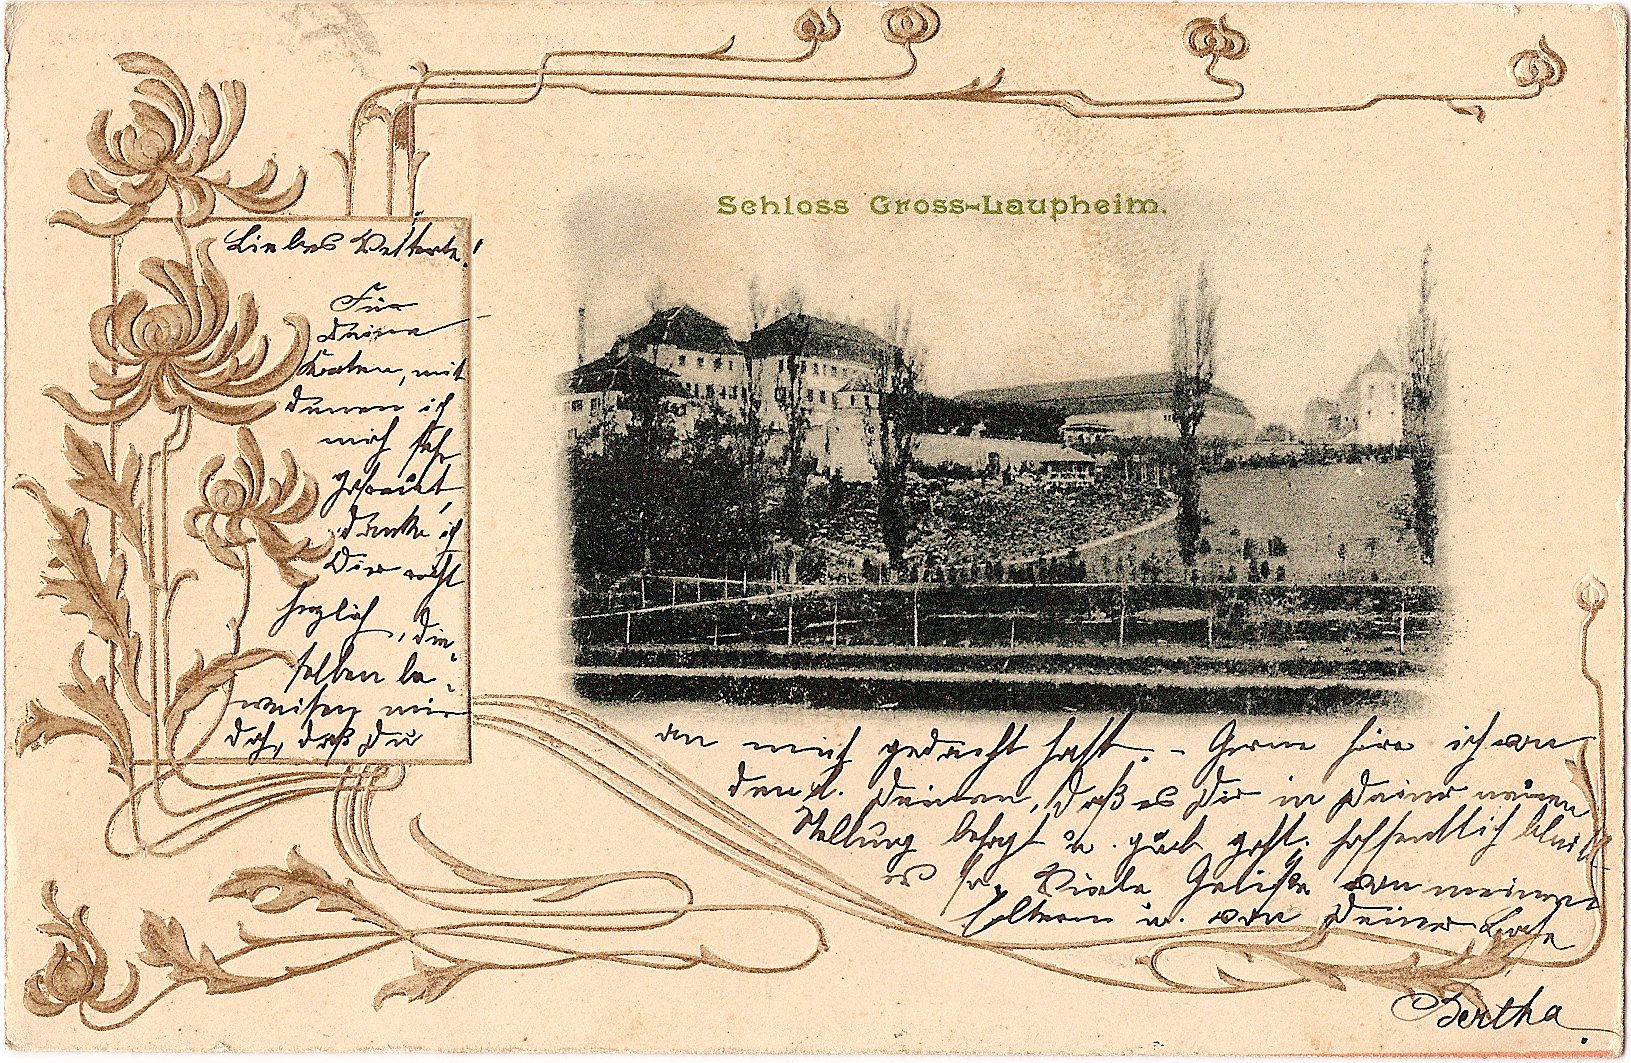 Schloss Gross-Laupheim.
Liebes Vetterle!
Für
Deine
Karten, mit
denen ich
mich sehr
gefreut,
danke ich
Dir recht
herzlich, die-
selben be-
weisen mir
doch, daß Du
an mich gedacht hast. - Gerne höre ich von
den l. Deinen, daß es Dir in Deiner neuen
Stellung behagt u. gut geht. hoffentlich bleibt
es so. Viele Grüße von meinen
Eltern u. von Deiner Base
Bertha.